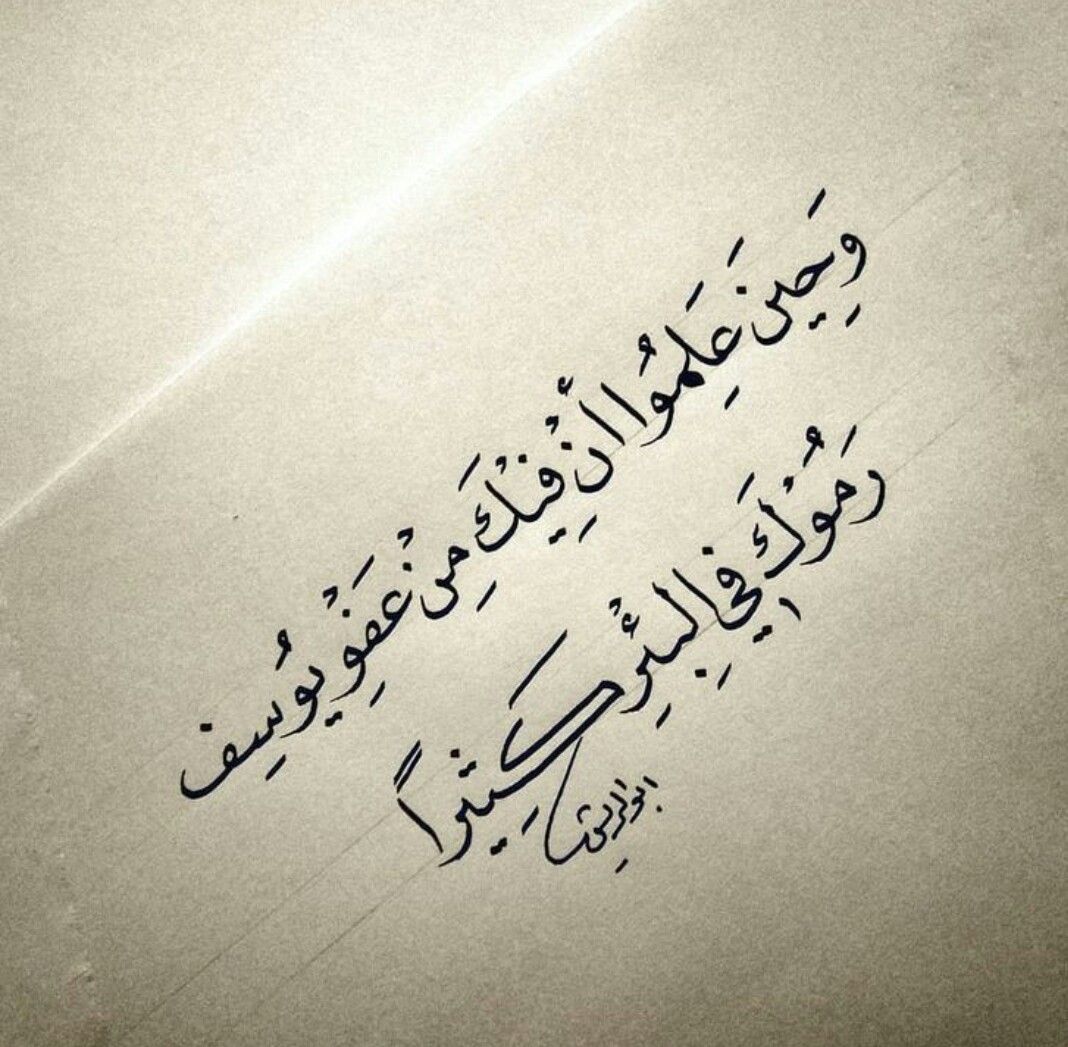 وَحِينَ عَلِمُوا أَنْ فِيْكَ مِنْ عَفْوِ يُوسِف
رَمَوُْكَ فِي البِئْرِ كَثِيْراً